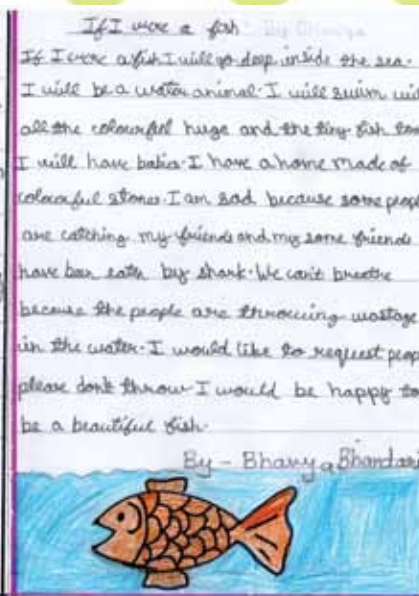 If I were a fish
If I were a fish I will go deep inside the sea.
I will be a water animal. I will swim wit
all the colourful huge and the tiny fish too
I will have babies. I have a home made of
colourful stones. I am sad because some peopl
are catching my friends and my some friends
have ban eatn by shark. We can't breathe
because the people are throwing wastage
in the water. I would like to request peop
please don't throw. I would be happy to
be a beautiful fish.
By - Bhavya Bhandari